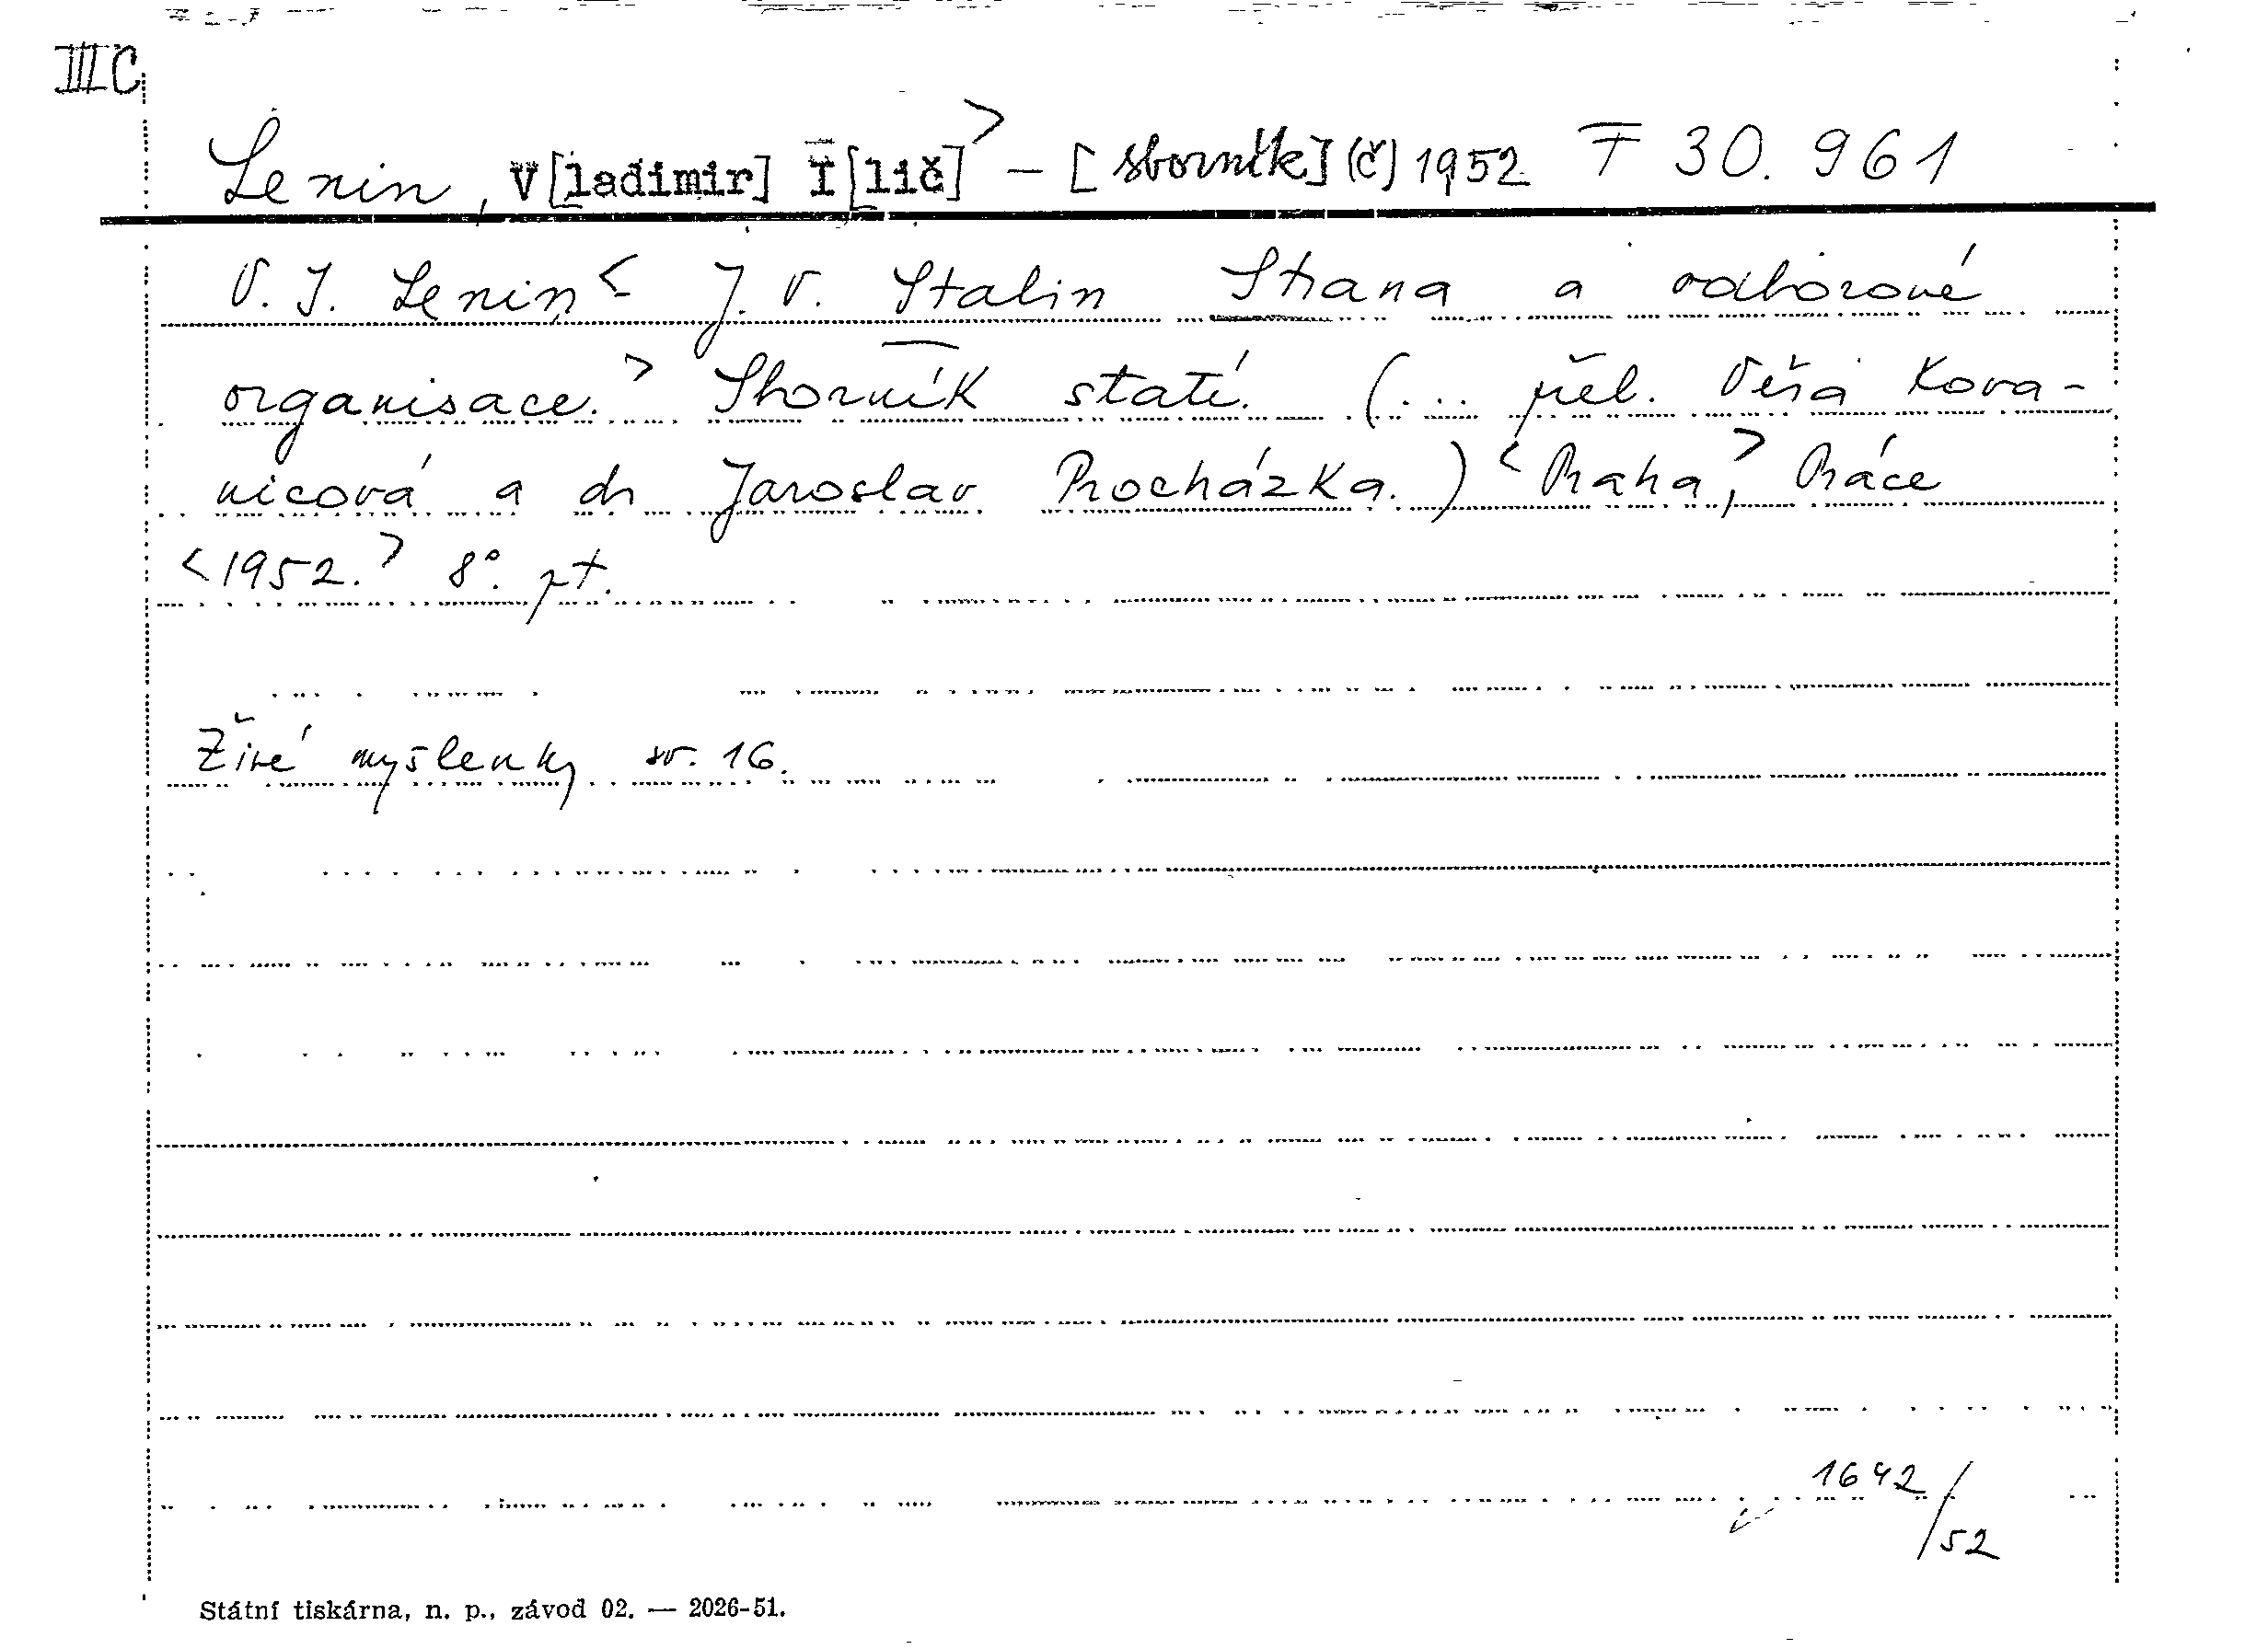 III C
Lenin, V[ladimir] I[lič]> - [sborník] (č) 1952 F 30.961
V. I. Lenin < J. V. Stalin Strana a odborové
organisace.> Sborník statí. (... přel. Věra Kova-
nicová a dr Jaroslav Procházka.) <Praha,> Práce
<1952.> 8°. pt.
Živé myšlenky sv. 16.
1642/52
Státní tiskárna, n. p., závod 02. — 2026-51.